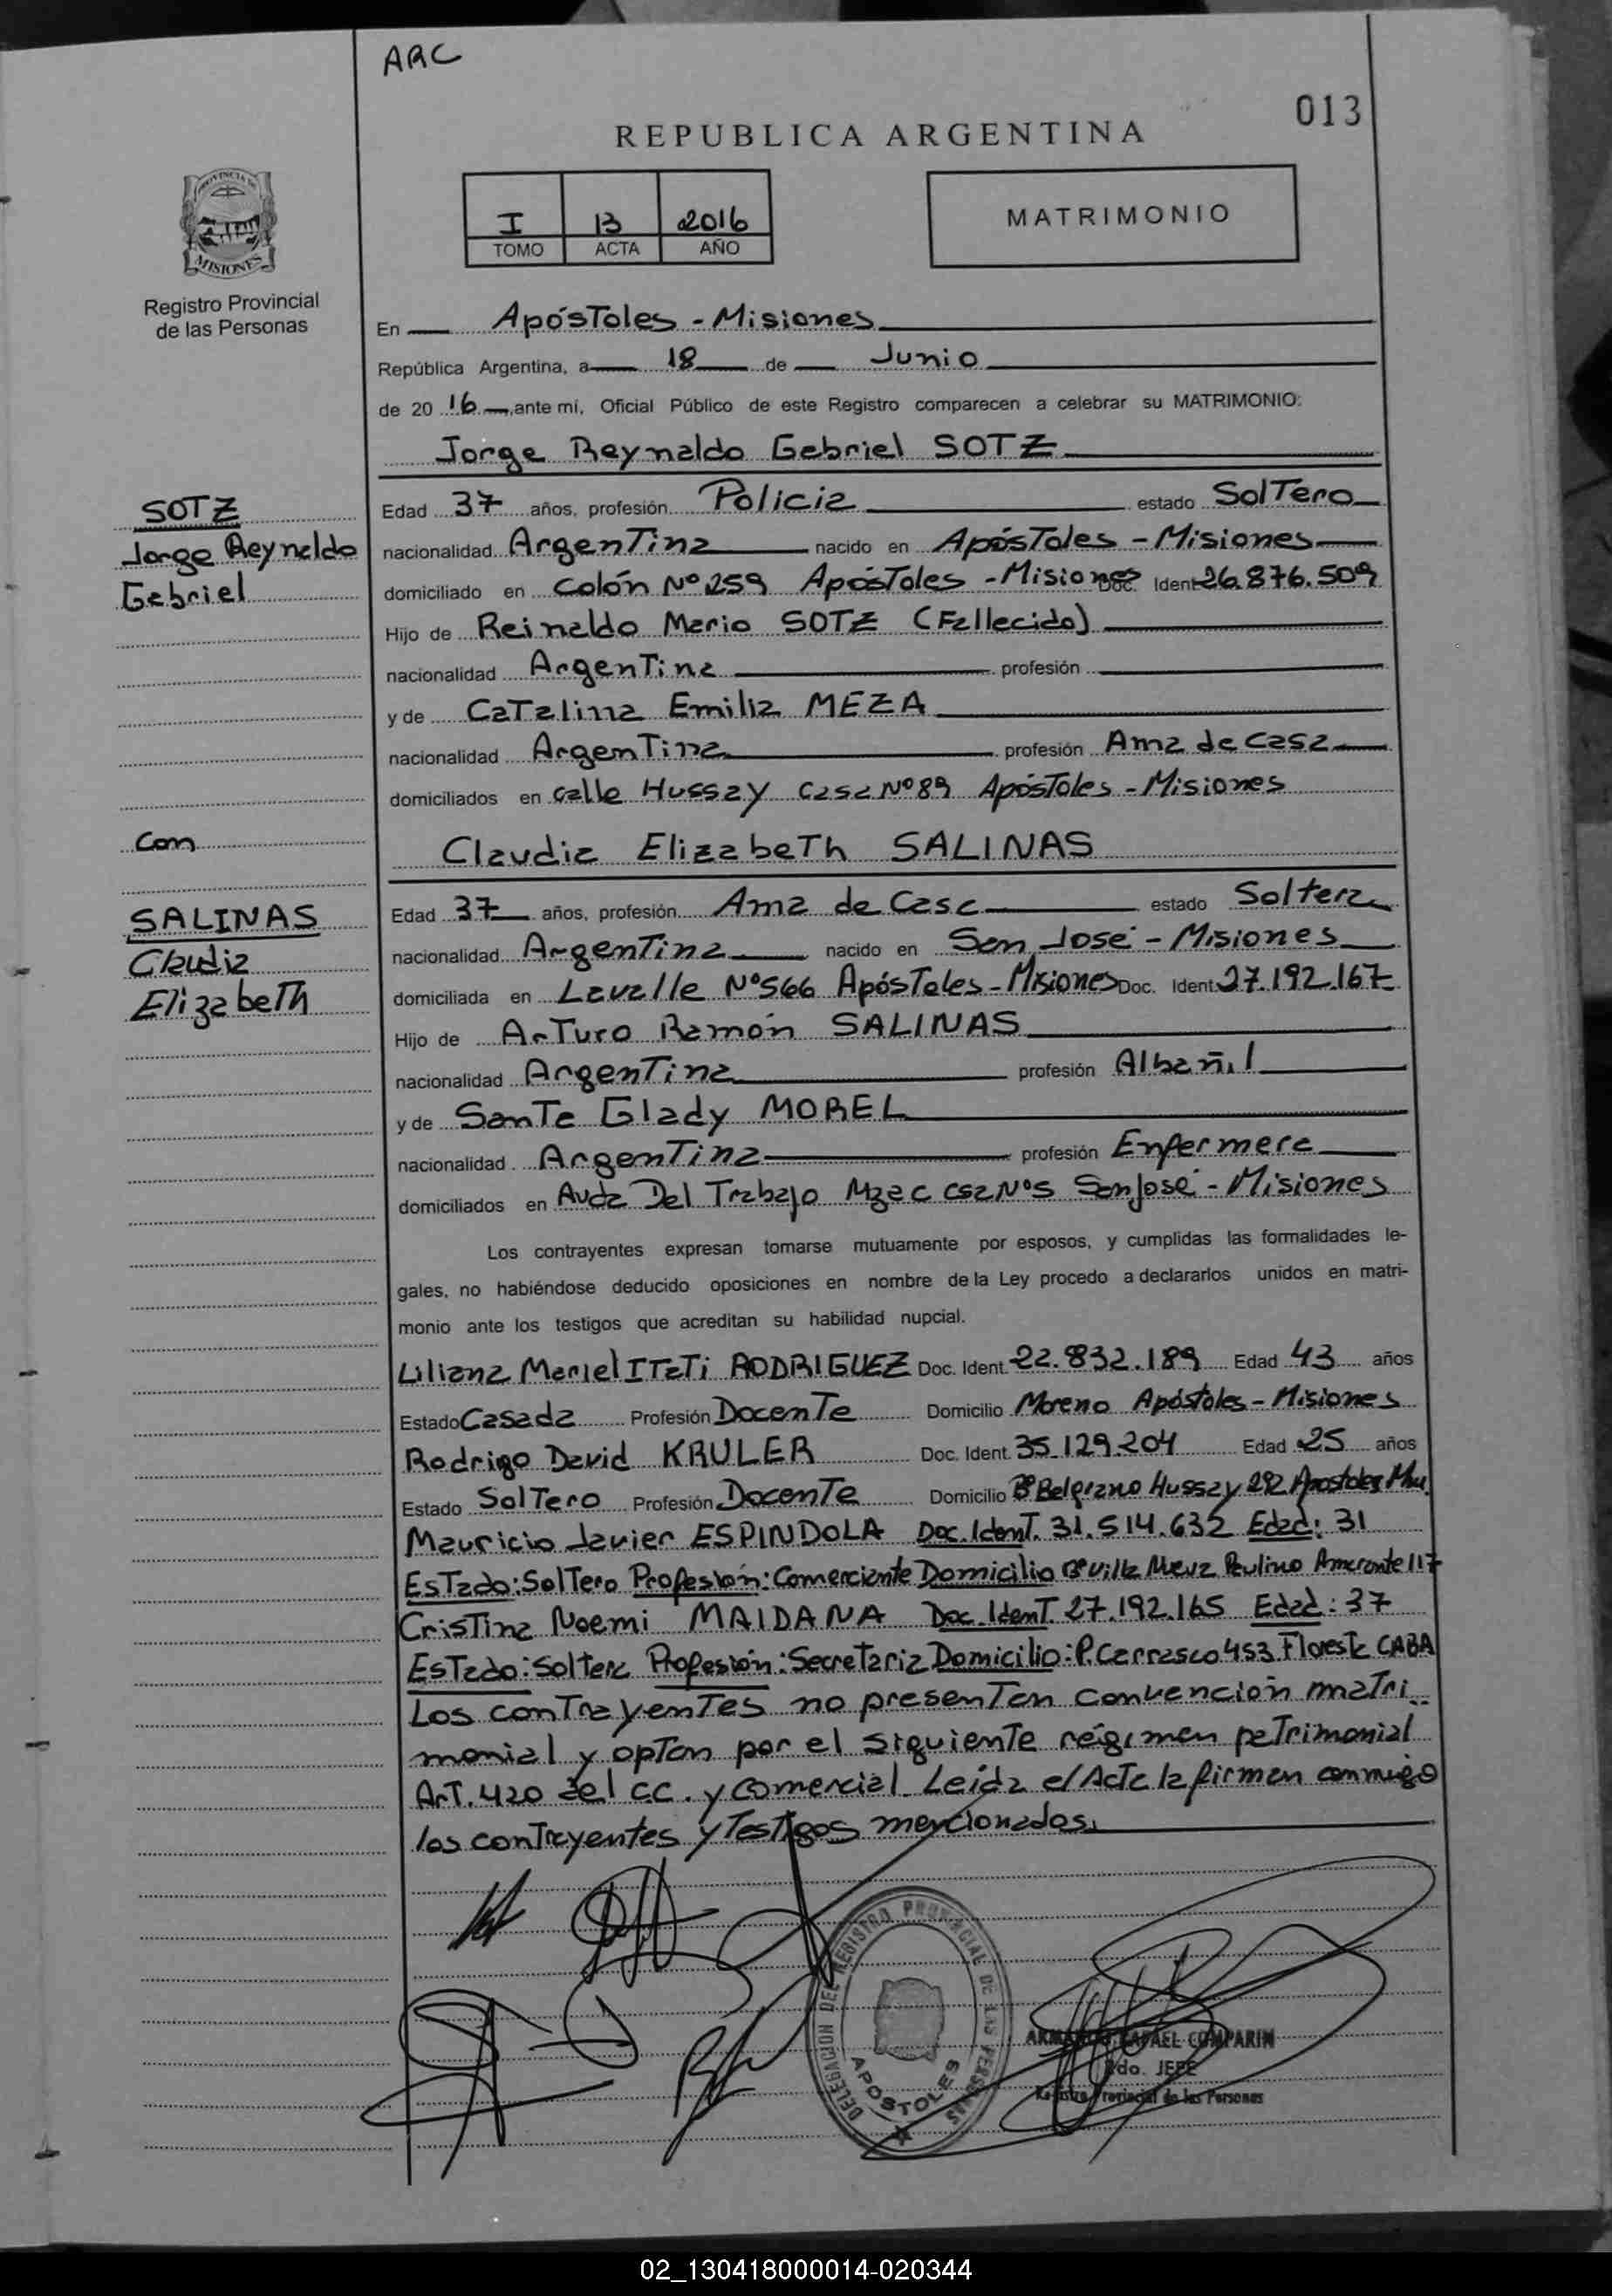 ARC
013
REPUBLICA ARGENTINA
I 13 2016
TOMO ACTA AÑO
MATRIMONIO
PROVINCIA DE
MISIONES
Registro Provincial
de las Personas
En Apóstoles - Misiones
República Argentina, a 18 de Junio
de 20 16 , ante mí, Oficial Público de este Registro comparecen a celebrar su MATRIMONIO:
Jorge Reynaldo Gabriel SOTZ
SOTZ
Jorge Reynaldo
Gabriel
Edad 37 años, profesión Policia estado Soltero
nacionalidad Argentina nacido en Apóstoles - Misiones
domiciliado en Colón Nº 259 Apóstoles - Misiones Doc. Ident. 26.876.509
Hijo de Reinaldo Mario SOTZ (Fallecido)
nacionalidad Argentina profesión
y de Catalina Emilia MEZA
nacionalidad Argentina profesión Ama de casa
domiciliados en calle Hussay casa Nº 89 Apóstoles - Misiones
Con
Claudia Elizabeth SALINAS
SALINAS
Claudia
Elizabeth
Edad 37 años, profesión Ama de Casa estado Soltera
nacionalidad Argentina nacido en San José - Misiones
domiciliada en Lavalle Nº 566 Apóstoles - Misiones Doc. Ident. 27.192.167
Hijo de Arturo Ramón SALINAS
nacionalidad Argentina profesión Albañil
y de Santa Glady MOREL
nacionalidad Argentina profesión Enfermera
domiciliados en Avda Del Trabajo Mza C csa Nº 5 San José - Misiones
Los contrayentes expresan tomarse mutuamente por esposos, y cumplidas las formalidades le-
gales, no habiéndose deducido oposiciones en nombre de la Ley procedo a declararlos unidos en matri-
monio ante los testigos que acreditan su habilidad nupcial.
Liliana Mariel ITATI RODRIGUEZ Doc. Ident. 22.832.189 Edad 43 años
Estado Casada Profesión Docente Domicilio Moreno Apóstoles - Misiones
Rodrigo David KRULER Doc. Ident. 35.129.204 Edad 25 años
Estado Soltero Profesión Docente Domicilio Bº Belgrano Hussay 292 Apostoles Mnes.
Mauricio Javier ESPINDOLA Doc. Ident. 31.514.632 Edad: 31
Estado: Soltero Profesión: Comerciante Domicilio Bº Villa Nueva Paulino Amarante 117
Cristina Noemi MAIDANA Doc. Ident. 27.192.165 Edad: 37
Estado: Soltera Profesión: Secretaria Domicilio: P. Carrasco 453 Floresta CABA
Los contrayentes no presentan convención matri-
monial y optan por el siguiente régimen patrimonial
Art. 420 del C.C. y Comercial. Leída el Acta la firman conmigo
los contrayentes y testigos mencionados.
DELEGACION DEL REGISTRO PROVINCIAL DE LAS PERSONAS
APOSTOLES
RAFAEL COMPARIN
2do. JEFE
Registro Provincial de las Personas
02_130418000014-020344